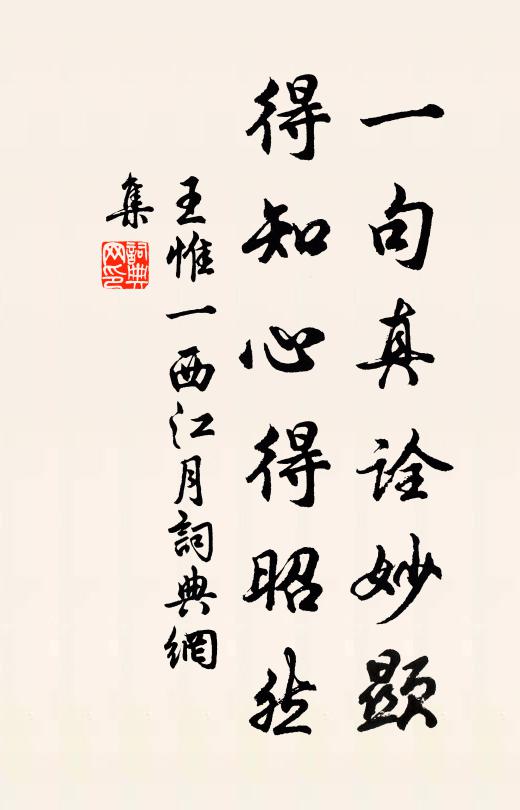 一句真詮妙顯
得知心得昭然
王惟一西江月詞典網
集
詞典网印